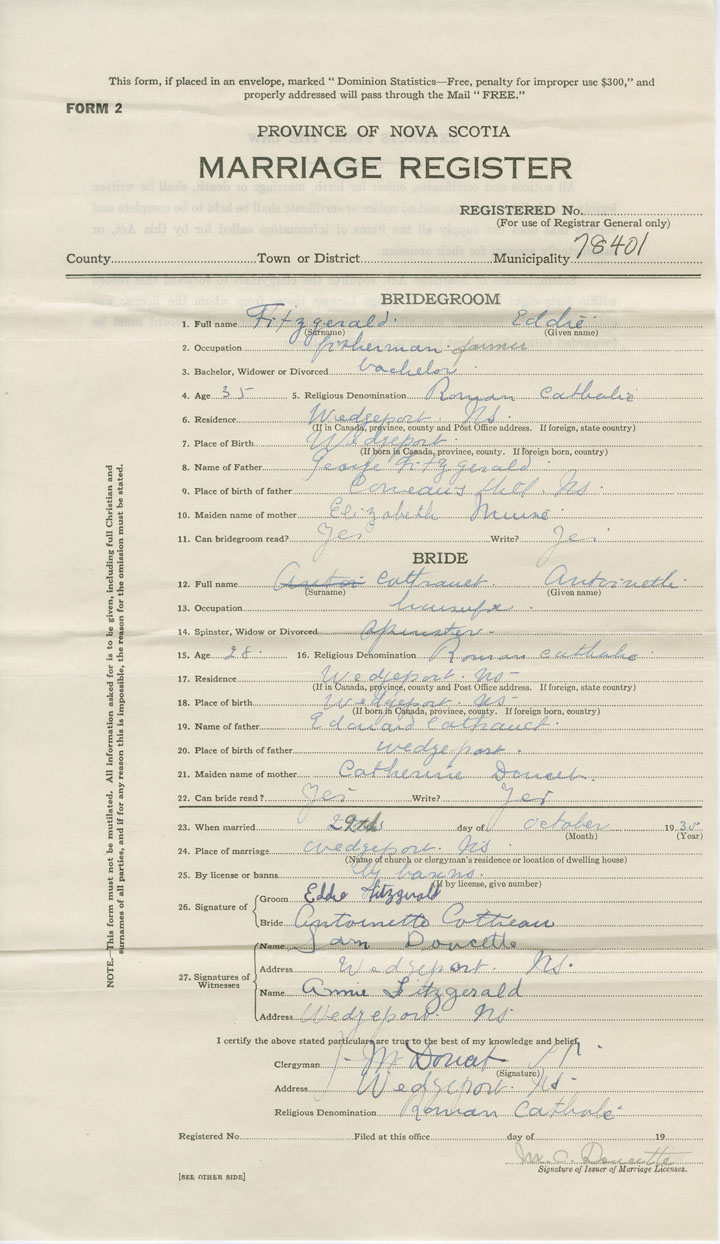 This form, if placed in an envelope, marked " Dominion Statistics—Free, penalty for improper use $300," and
properly addressed will pass through the Mail " FREE."
FORM 2
PROVINCE OF NOVA SCOTIA
MARRIAGE REGISTER
REGISTERED No.
(For use of Registrar General only)
78401
County Town or District Municipality
BRIDEGROOM
1. Full name Fitzgerald Eddie
(Surname) (Given name)
2. Occupation fisherman
3. Bachelor, Widower or Divorced bachelor
4. Age 35 5. Religious Denomination Roman Catholic
6. Residence Wedgeport NS.
(If in Canada, province, county and Post Office address. If foreign, state country)
7. Place of Birth Wedgeport
(If born in Canada, province, county. If foreign born, country)
8. Name of Father George Fitzgerald
9. Place of birth of father Comeau's Hill. Ns.
10. Maiden name of mother Elizabeth Muise
11. Can bridegroom read? Yes Write? Yes
BRIDE
12. Full name Cottreau Antoinette
(Surname) (Given name)
13. Occupation
14. Spinster, Widow or Divorced spinster
15. Age 28 16. Religious Denomination Roman Catholic
17. Residence Wedgeport. Ns
(If in Canada, province, county and Post Office address. If foreign, state country)
18. Place of birth Wedgeport. Ns
(If born in Canada, province, county. If foreign born, country)
19. Name of father Edouard
20. Place of birth of father wedgeport.
21. Maiden name of mother Catherine Doucet
22. Can bride read? Yes Write? Yes
23. When married 29th day of October 1935
(Month) (Year)
24. Place of marriage wedgeport. Ns.
(Name of church or clergyman's residence or location of dwelling house)
25. By license or banns By banns.
(If by license, give number)
26. Signature of Groom Eddie Fitzgerald
Bride Antoinette Cottreau
27. Signatures of Witnesses Name Sam Doucette
Address Wedgeport. Ns.
Name Annie Fitzgerald
Address Wedgeport. Ns
I certify the above stated particulars are true to the best of my knowledge and belief,
Clergyman
(Signature)
Address Wedgeport. Ns.
Religious Denomination Roman Catholic
Registered No. Filed at this office day of 19
M. C. Doucette
Signature of Issuer of Marriage Licenses.
[SEE OTHER SIDE]
NOTE.—This form must not be mutilated. All information asked for is to be given, including full Christian and
surnames of all parties, and if for any reason this is impossible, the reason for the omission must be stated.